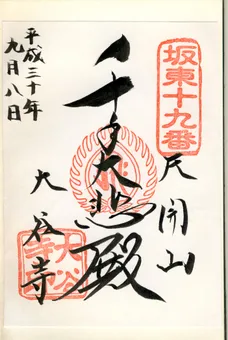 坂東十九番
天開山
千手大悲殿
大谷寺
平成三十年
九月八日